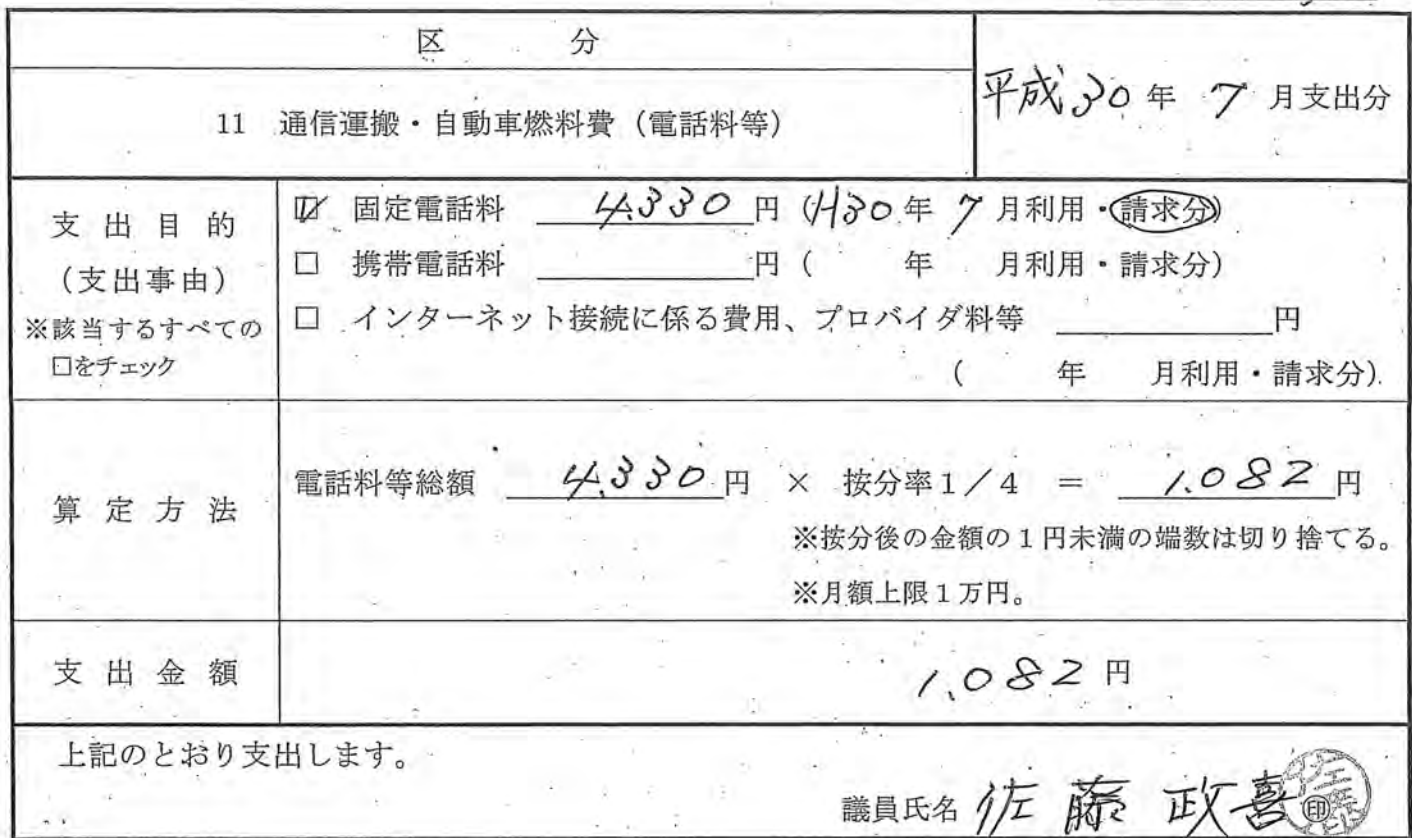 区 分
平成30年 7月支出分
11 通信運搬・自動車燃料費（電話料等）
支出目的
（支出事由）
※該当するすべての
□をチェック
☑ 固定電話料 4,330円（H30年7月利用・請求分）
□ 携帯電話料 円（ 年 月利用・請求分）
□ インターネット接続に係る費用、プロバイダ料等 円
（ 年 月利用・請求分）
算定方法
電話料等総額 4,330円 × 按分率1／4 ＝ 1,082円
※按分後の金額の1円未満の端数は切り捨てる。
※月額上限1万円。
支出金額
1,082円
上記のとおり支出します。
議員氏名 佐藤 政喜 ㊞